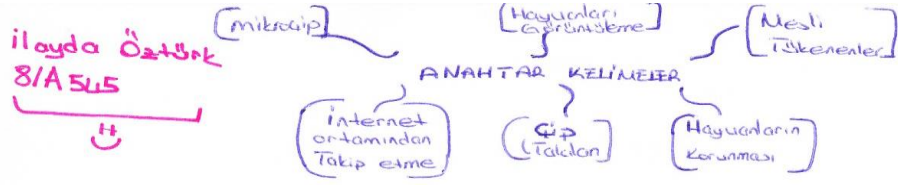 ilayda Öztürk
8/A 545
[mikroçip]
[Hayvanları
Görüntüleme]
[Nesli
Tükenenler]
ANAHTAR KELİMELER
[internet
ortamından
Takip etme]
[Çip
Takılan]
[Hayvanların
Korunması]